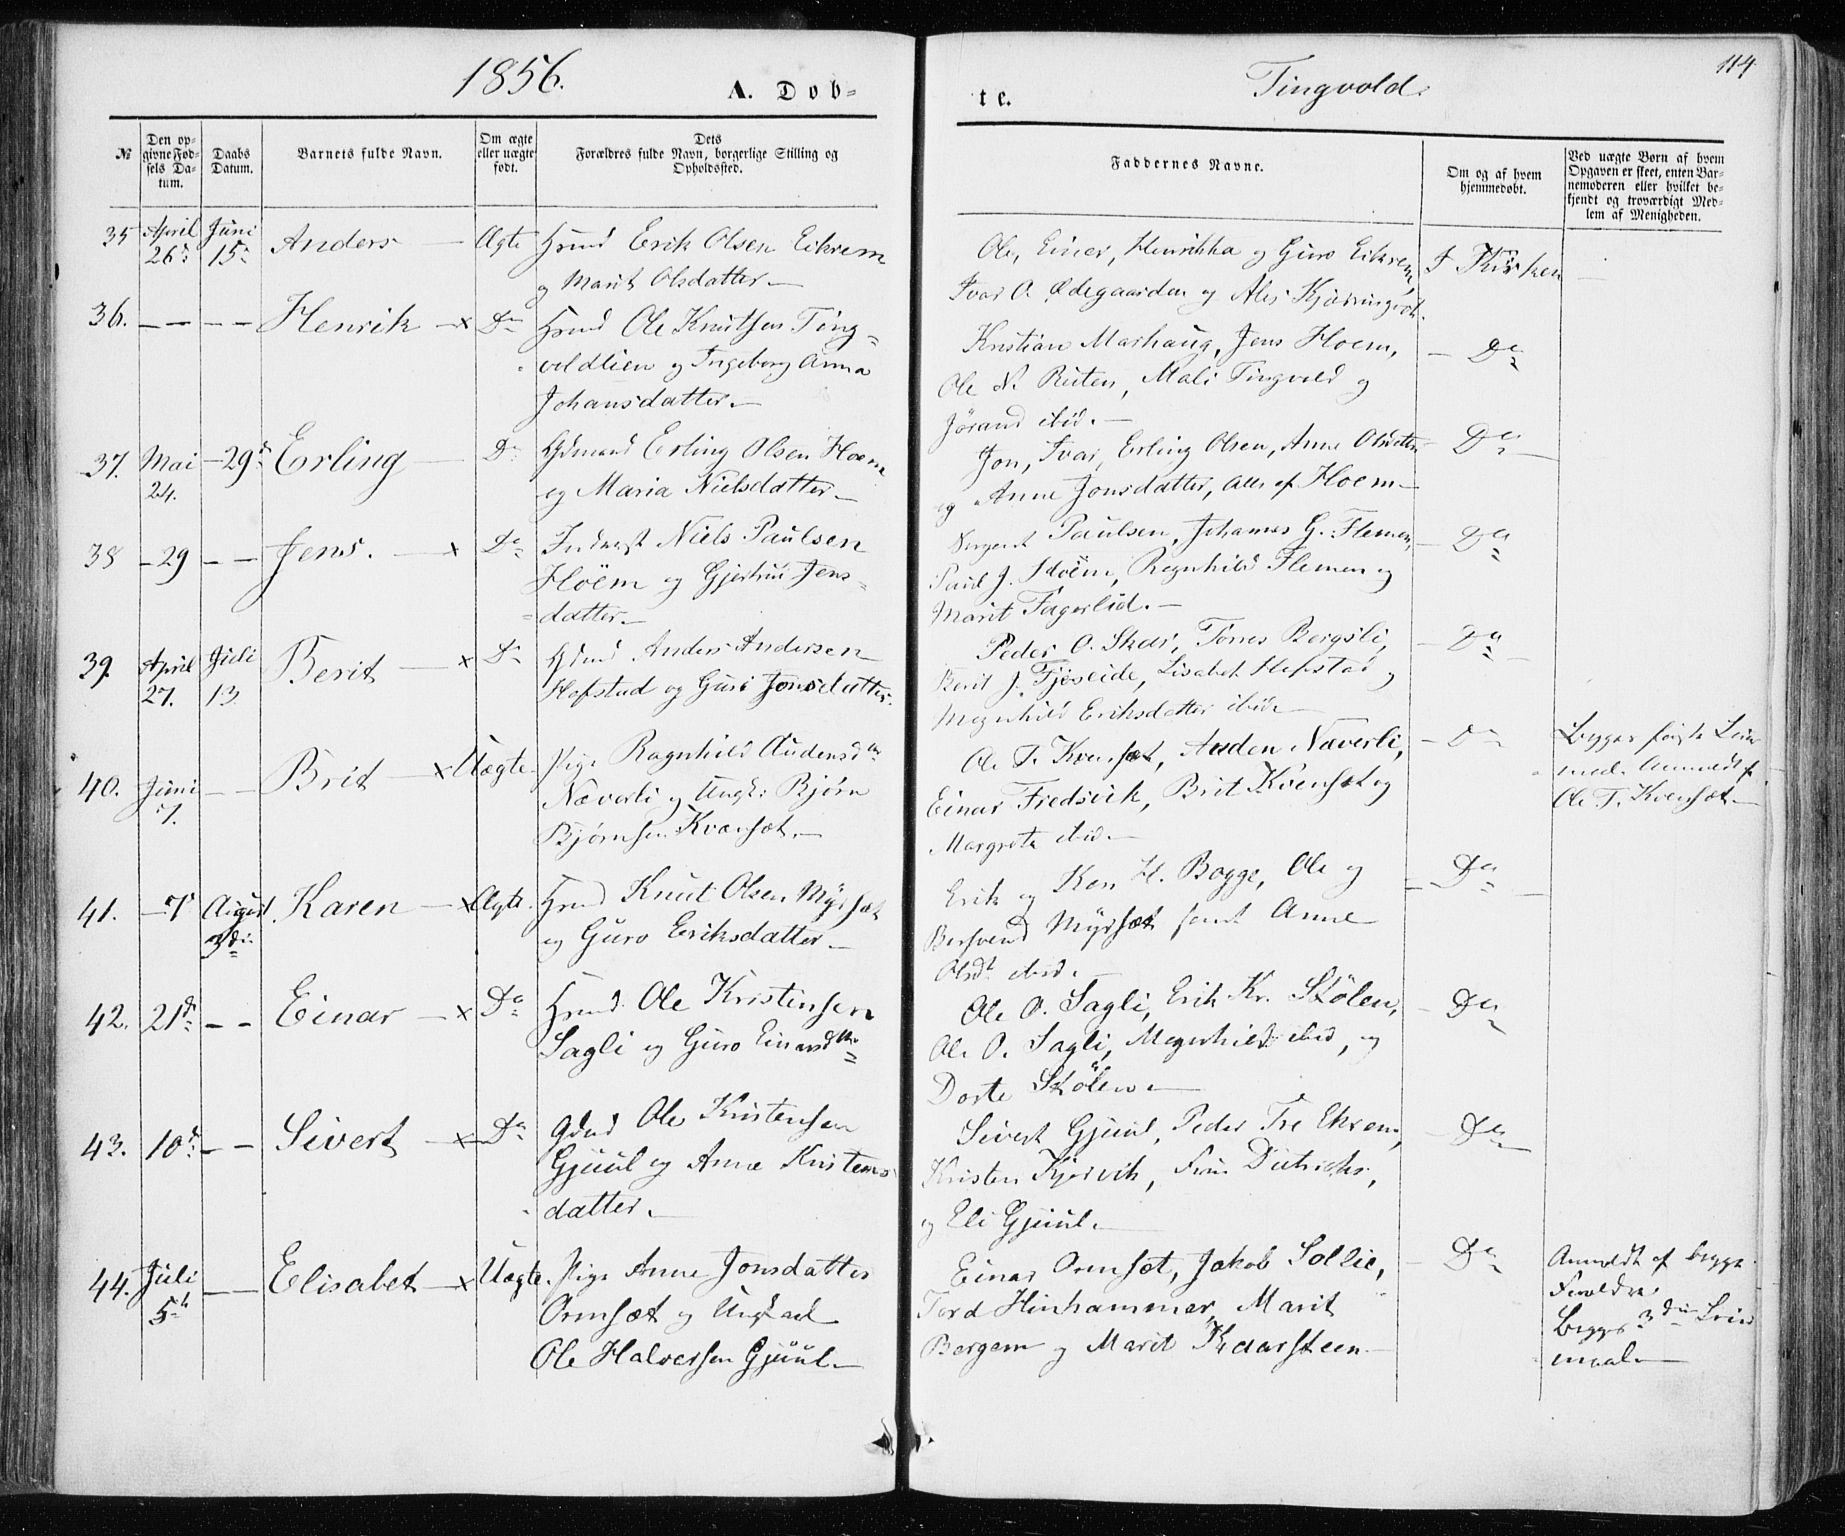 1856.
A. Dob-
te.
Tingvold.
114
№
Den opgivne Fødsels Datum.
Daabs Datum.
Barnets fulde Navn.
Om ægte eller uægte født.
Dets Forældres fulde Navn, borgerlige Stilling og Opholdssted.
Faddernes Navne.
Om og af hvem hjemmedøbt.
Ved uægte Børn af hvem Opgaven er skeet, enten Barnemoderen eller hvilket bekjendt og troværdigt Medlem af Menigheden.
35 April 26d: Juni 15d: Anders — Ægte
Hsmd Erik Olsen Eikrem
og Marit Olsdatter.—
Ole, Einer, Henrikka og Guro Eikrem,
Ivar O. Ødegaarden og Ales
I Kirken
36. — — — — Henrik — x Do
Hsmd Ole Knutsen Ting-
voldlien og Ingeborg Anna
Johansdatter.—
Kristian Marhaug, Jens Hoem,
Ole N. Ruten, Mali Tingvold og
Jørand ibid.—
— Do
37. Mai 24. — 29d: Erling — Do
Gdmand Erling Olsen Hoem
og Maria Nielsdatter.—
Jon, Ivar, Erling Olsen, Anne Olsdatter
og Anne Jonsdatter, alle af Hoem.—
Do
38 — 29 — — Jens. — x Do
Inderst Niels Paulsen
Hoëm og Gjertrud Jens-
datter.—
Sergent Paulsen, Johannes G. Flemen,
Paul J. Hoëm, Ragnhild Flemen og
Marit Fagerlid.—
— Do
39. April 27. Juli 13. Berit — x Do
Gdmd Anders Andersen
Hofstad og Guri Jonsdatter.
Peder O. Skar, Tørres Bergsli,
Berit J. Fjøseide, Lisabet Hofstad og
Magnhild Eriksdatter ibid.—
— Do
40. Juni 7. — — Brit — x Uægte
Pige Ragnhild Audensdr
Næverli og Ungk: Bjørn
Bjørnsen Kvænsæt.—
Ole T. Kvensæt, Auden Næverli,
Einar Fredsvik, Brit Kvensæt og
Margrete ibid.—
— Do
Begges første Leier-
maal. Anmeldt af
Ole T. Kvensæt.—
41. — 7d August 3die Karen — x Ægte.
Hsmd Knut Olsen Myrsæt
og Guro Eriksdatter.—
Erik og Kari H. Bogge, Ole og
Bersvend Myrsæt samt Anne
Olsdt ibid.
— Do
42. 21d: — — Einar — x Do
Hsmd. Ole Kristensen
Sagli og Guro Einarsdtr
Ole O. Sagli, Erik Kr. Stölen,
Ole O. Sagli, Magnhild ibid, og
Dorte Stölen.—
— Do
43. 10d: — — Sivert — x Do
Gdmd Ole Kristensen
Gjüül og Anne Kristens-
datter.—
Sivert Gjüül, Peder Ekrem,
Kristen Kjørvik, Frue Dietrichs,
og Eli Gjüül.—
— Do
44. Juli 5te — — Elisabet — x Uægte.
Pige Anne Jonsdatter
Ormsæt og Ungkarl
Ole Halversen Gjüül.—
Einar Ormsæt, Jakob Sollie,
Tord Hinhammer, Marit
Bergem og Marit Kaarsteen.—
— Do
Anmeldt af begge
Forældre.
Begges 3die Leier-
maal.—